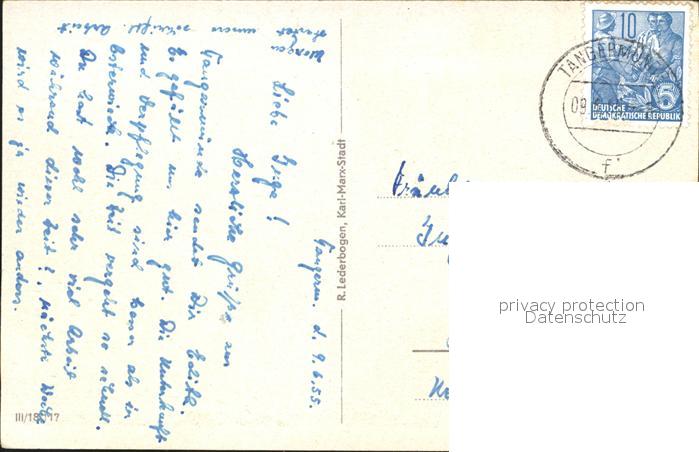 Tangerm. d. 9.6.55.
Liebe Inge!
Herzliche Grüße aus
Tangermünde sendet Dir Edith.
Es gefällt uns hier gut. Die Unterkunft
und Verpflegung sind besser als in
Osterwieck. Die Zeit vergeht so schnell.
Du hast wohl sehr viel Arbeit
während dieser Zeit? Nächste Woche
wird es ja wieder anders.
Morgen startet unsere schriftl. Arbeit
R. Lederbogen, Karl-Marx-Stadt
III/18/117
10
5
DEUTSCHE
DEMOKRATISCHE REPUBLIK
TANGERMÜNDE
09.
f
privacy protection
Datenschutz